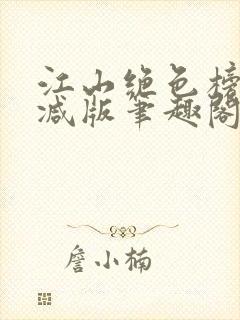 江山绝色榜
减版笔趣阁
詹小楠